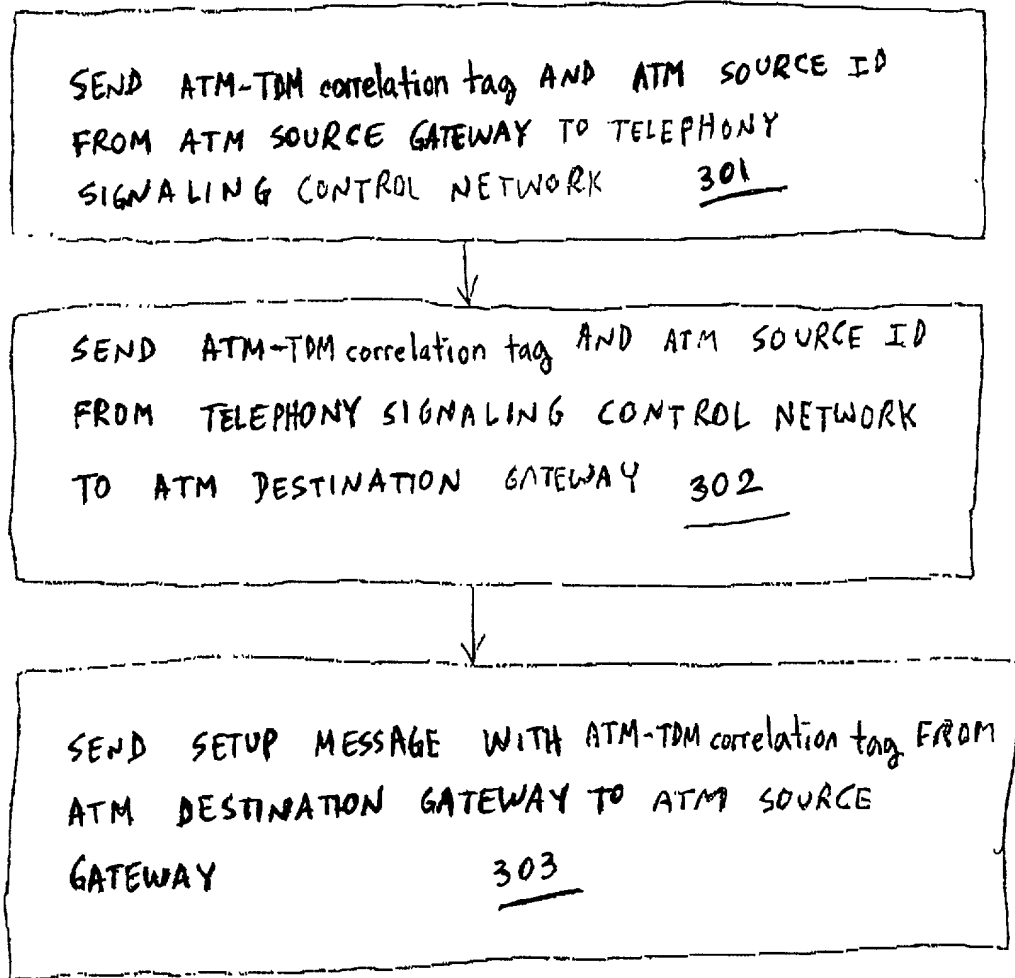 SEND ATM-TDM correlation tag AND ATM SOURCE ID
FROM ATM SOURCE GATEWAY TO TELEPHONY
SIGNALING CONTROL NETWORK 301
SEND ATM-TDM correlation tag AND ATM SOURCE ID
FROM TELEPHONY SIGNALING CONTROL NETWORK
TO ATM DESTINATION GATEWAY 302
SEND SETUP MESSAGE WITH ATM-TDM correlation tag FROM
ATM DESTINATION GATEWAY TO ATM SOURCE
GATEWAY 303